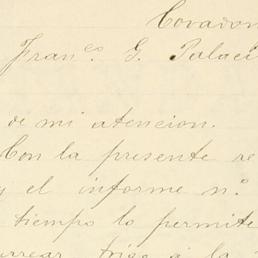 Covadon
Fran.co G. Palaci
de mi atencion.
Con la presente re
y el informe n.o
tiempo lo permite
trigo á la